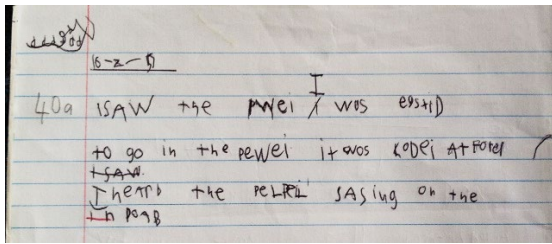 16-2-
40a ISAW the pwei I wos epstiD
to go in the pewei it wos KoDei At FoRel
I SAW
I heARD the peLPEL SASing on the
in POAB